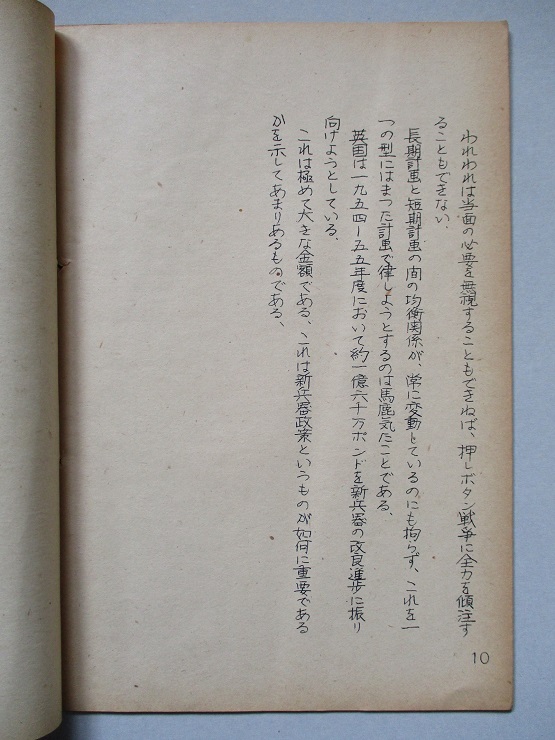 われわれは当面の必要を無視することもできねば、押しボタン戦争に全力を傾注す
ることもできない.
長期計画と短期計画の間の均衡関係が、常に変動しているのにも拘らず、これを一
つの型にはまつた計画で律しようとするのは馬鹿気たことである、
英国は一九五四ー五五年度において約一億六千万ポンドを新兵器の改良進歩に振り
向けようとしている、
これは極めて大きな金額である、これは新兵器政策というものが如何に重要である
かを示してあまりあるものである、
10